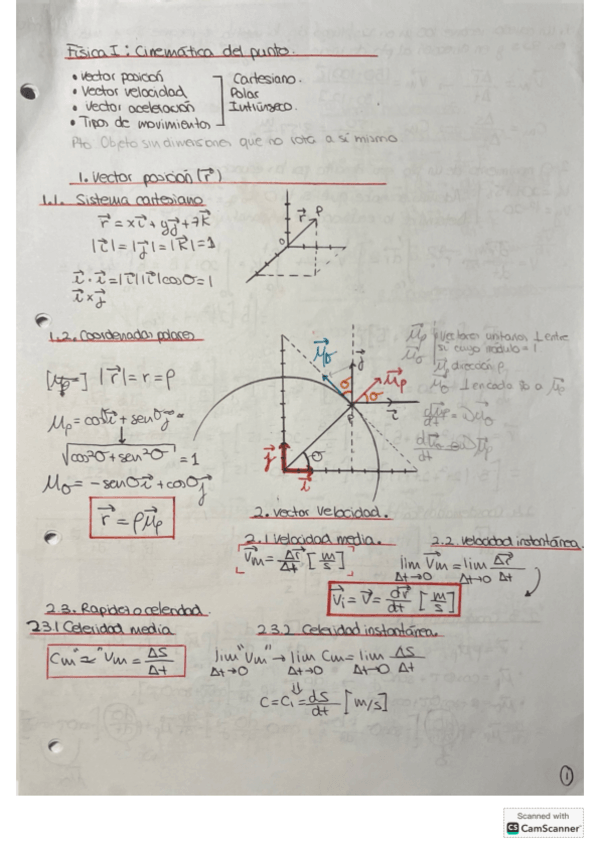 Física I: Cinemática del punto.
• Vector posición
• Vector velocidad
• Vector aceleración
• Tipos de movimientos
Cartesiano.
Polar
Intrínseco.
Pto. Objeto sin dimensiones que no rota a sí mismo
1. Vector posición (r⃗)
1.1. Sistema cartesiano
r⃗ = xi⃗ + yj⃗ + zk⃗
|i⃗| = |j⃗| = |k⃗| = 1
i⃗ · i⃗ = |i⃗||i⃗|cosσ = 1
i⃗ x j⃗
r⃗ P
O
1.2. Coordenadas polares
|r⃗| = r = ρ
μρ = cosσi⃗ + senσj⃗ =
√cos²σ + sen²σ = 1
μσ = -senσi⃗ + cosσj⃗
r⃗ = ρμ⃗ρ
μ⃗σ j⃗ μ⃗ρ
σ σ
P i⃗
j⃗ σ
i⃗
μ⃗ρ vectores unitarios ⊥ entre
μ⃗σ sí cuyo módulo = 1
μ⃗ρ dirección ρ,
dμρ/dt = μ⃗σ
2. Vector velocidad.
2.1 Velocidad media.
V⃗m = Δr⃗/Δt [m/s]
2.2. Velocidad instantánea
lim V⃗m = lim Δr⃗/Δt
Δt→0 Δt→0
V⃗i = V⃗ = dr⃗/dt [m/s]
2.3. Rapidez o celeridad.
2.3.1 Celeridad media
Cm "≃" Vm = ΔS/Δt
2.3.2 Celeridad instantánea.
lim "Vm" → lim Cm = lim ΔS/Δt
Δt→0 Δt→0 Δt→0
⇓
C = Ci = dS/dt [m/s]
1
Scanned with
CS CamScanner